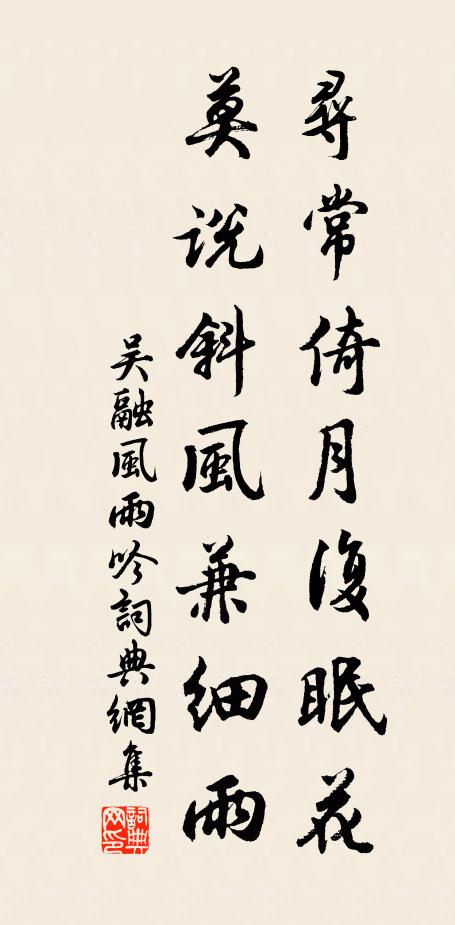 尋常倚月復眠花
莫说斜風兼細雨
吴融風雨吟詞典網集
詞典网印